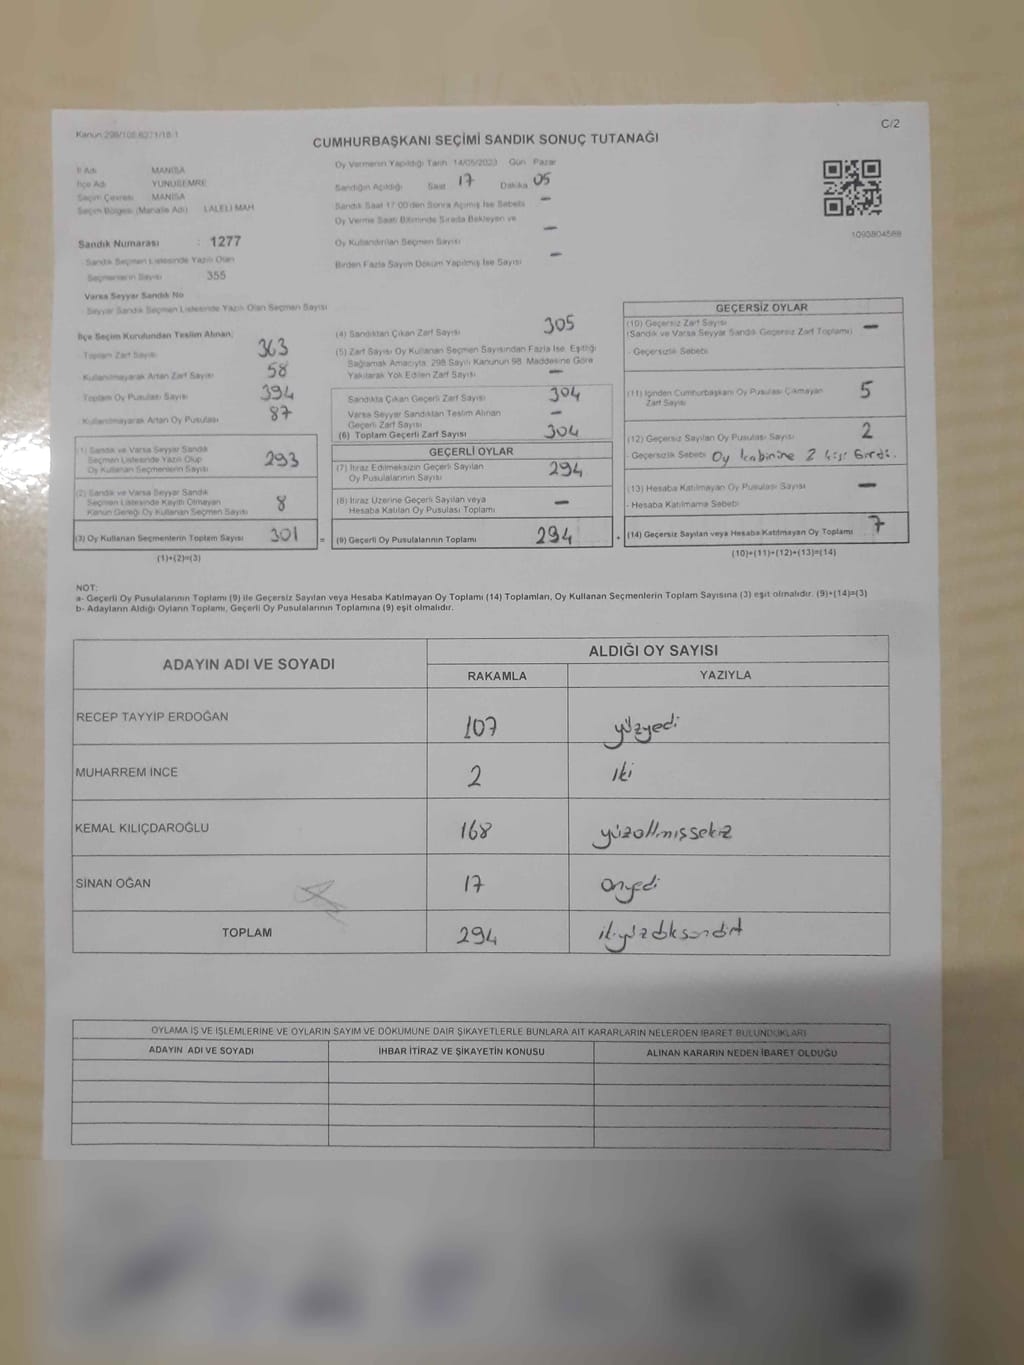 C/2
CUMHURBAŞKANI SEÇİMİ SANDIK SONUÇ TUTANAĞI
İl Adı MANİSA
İlçe Adı YUNUSEMRE
Seçim Çevresi MANİSA
Seçim Bölgesi (Mahalle Adı) LALELİ MAH
Sandık Numarası : 1277
Sandık Seçmen Listesinde Yazılı Olan
Seçmenlerin Sayısı 355
Varsa Seyyar Sandık No
Seyyar Sandık Seçmen Listesinde Yazılı Olan Seçmen Sayısı
Oy Vermenin Yapıldığı Tarih 14/05/2023 Gün Pazar
Sandığın Açıldığı Saat 17 Dakika 05
Sandık Saat 17:00'den Sonra Açılmış İse Sebebi -
Oy Verme Saati Bitiminde Sırada Bekleyen ve
Oy Kullandırılan Seçmen Sayısı -
Birden Fazla Sayım Döküm Yapılmış İse Sayısı -
1093804588
İlçe Seçim Kurulundan Teslim Alınan;
Toplam Zarf Sayısı 363
Kullanılmayarak Artan Zarf Sayısı 58
Toplam Oy Pusulası Sayısı 394
Kullanılmayarak Artan Oy Pusulası 87
(1) Sandık ve Varsa Seyyar Sandık
Seçmen Listesinde Yazılı Olup
Oy Kullanan Seçmenlerin Sayısı 293
(2) Sandık ve Varsa Seyyar Sandık
Seçmen Listesinde Kayıtlı Olmayan
Kanun Gereği Oy Kullanan Seçmen Sayısı 8
(3) Oy Kullanan Seçmenlerin Toplam Sayısı 301
(1)+(2)=(3)
(4) Sandıktan Çıkan Zarf Sayısı 305
(5) Zarf Sayısı Oy Kullanan Seçmen Sayısından Fazla İse, Eşitliği
Sağlamak Amacıyla, 298 Sayılı Kanunun 98. Maddesine Göre
Yakılarak Yok Edilen Zarf Sayısı -
Sandıkta Çıkan Geçerli Zarf Sayısı 304
Varsa Seyyar Sandıktan Teslim Alınan
Geçerli Zarf Sayısı -
(6) Toplam Geçerli Zarf Sayısı 304
GEÇERLİ OYLAR
(7) İtiraz Edilmeksizin Geçerli Sayılan
Oy Pusulalarının Sayısı 294
(8) İtiraz Üzerine Geçerli Sayılan veya
Hesaba Katılan Oy Pusulası Toplamı -
= (9) Geçerli Oy Pusulalarının Toplamı 294
GEÇERSİZ OYLAR
(10) Geçersiz Zarf Sayısı
(Sandık ve Varsa Seyyar Sandık Geçersiz Zarf Toplamı) -
- Geçersizlik Sebebi
(11) İçinden Cumhurbaşkanı Oy Pusulası Çıkmayan
Zarf Sayısı 5
(12) Geçersiz Sayılan Oy Pusulası Sayısı 2
- Geçersizlik Sebebi Oy kabinine 2 kişi Girdi.
(13) Hesaba Katılmayan Oy Pusulası Sayısı -
- Hesaba Katılmama Sebebi
+ (14) Geçersiz Sayılan veya Hesaba Katılmayan Oy Toplamı 7
(10)+(11)+(12)+(13)=(14)
NOT:
a- Geçerli Oy Pusulalarının Toplamı (9) ile Geçersiz Sayılan veya Hesaba Katılmayan Oy Toplamı (14) Toplamları, Oy Kullanan Seçmenlerin Toplam Sayısına (3) eşit olmalıdır. (9)+(14)=(3)
b- Adayların Aldığı Oyların Toplamı, Geçerli Oy Pusulalarının Toplamına (9) eşit olmalıdır.
ADAYIN ADI VE SOYADI ALDIĞI OY SAYISI
RAKAMLA YAZIYLA
RECEP TAYYİP ERDOĞAN 107 yüzyedi
MUHARREM İNCE 2 iki
KEMAL KILIÇDAROĞLU 168 yüzaltmışsekiz
SİNAN OĞAN 17 onyedi
TOPLAM 294 ikiyüzdoksandört
OYLAMA İŞ VE İŞLEMLERİNE VE OYLARIN SAYIM VE DÖKÜMÜNE DAİR ŞİKAYETLERLE BUNLARA AİT KARARLARIN NELERDEN İBARET BULUNDUKLARI
ADAYIN ADI VE SOYADI İHBAR İTİRAZ VE ŞİKAYETİN KONUSU ALINAN KARARIN NEDEN İBARET OLDUĞU